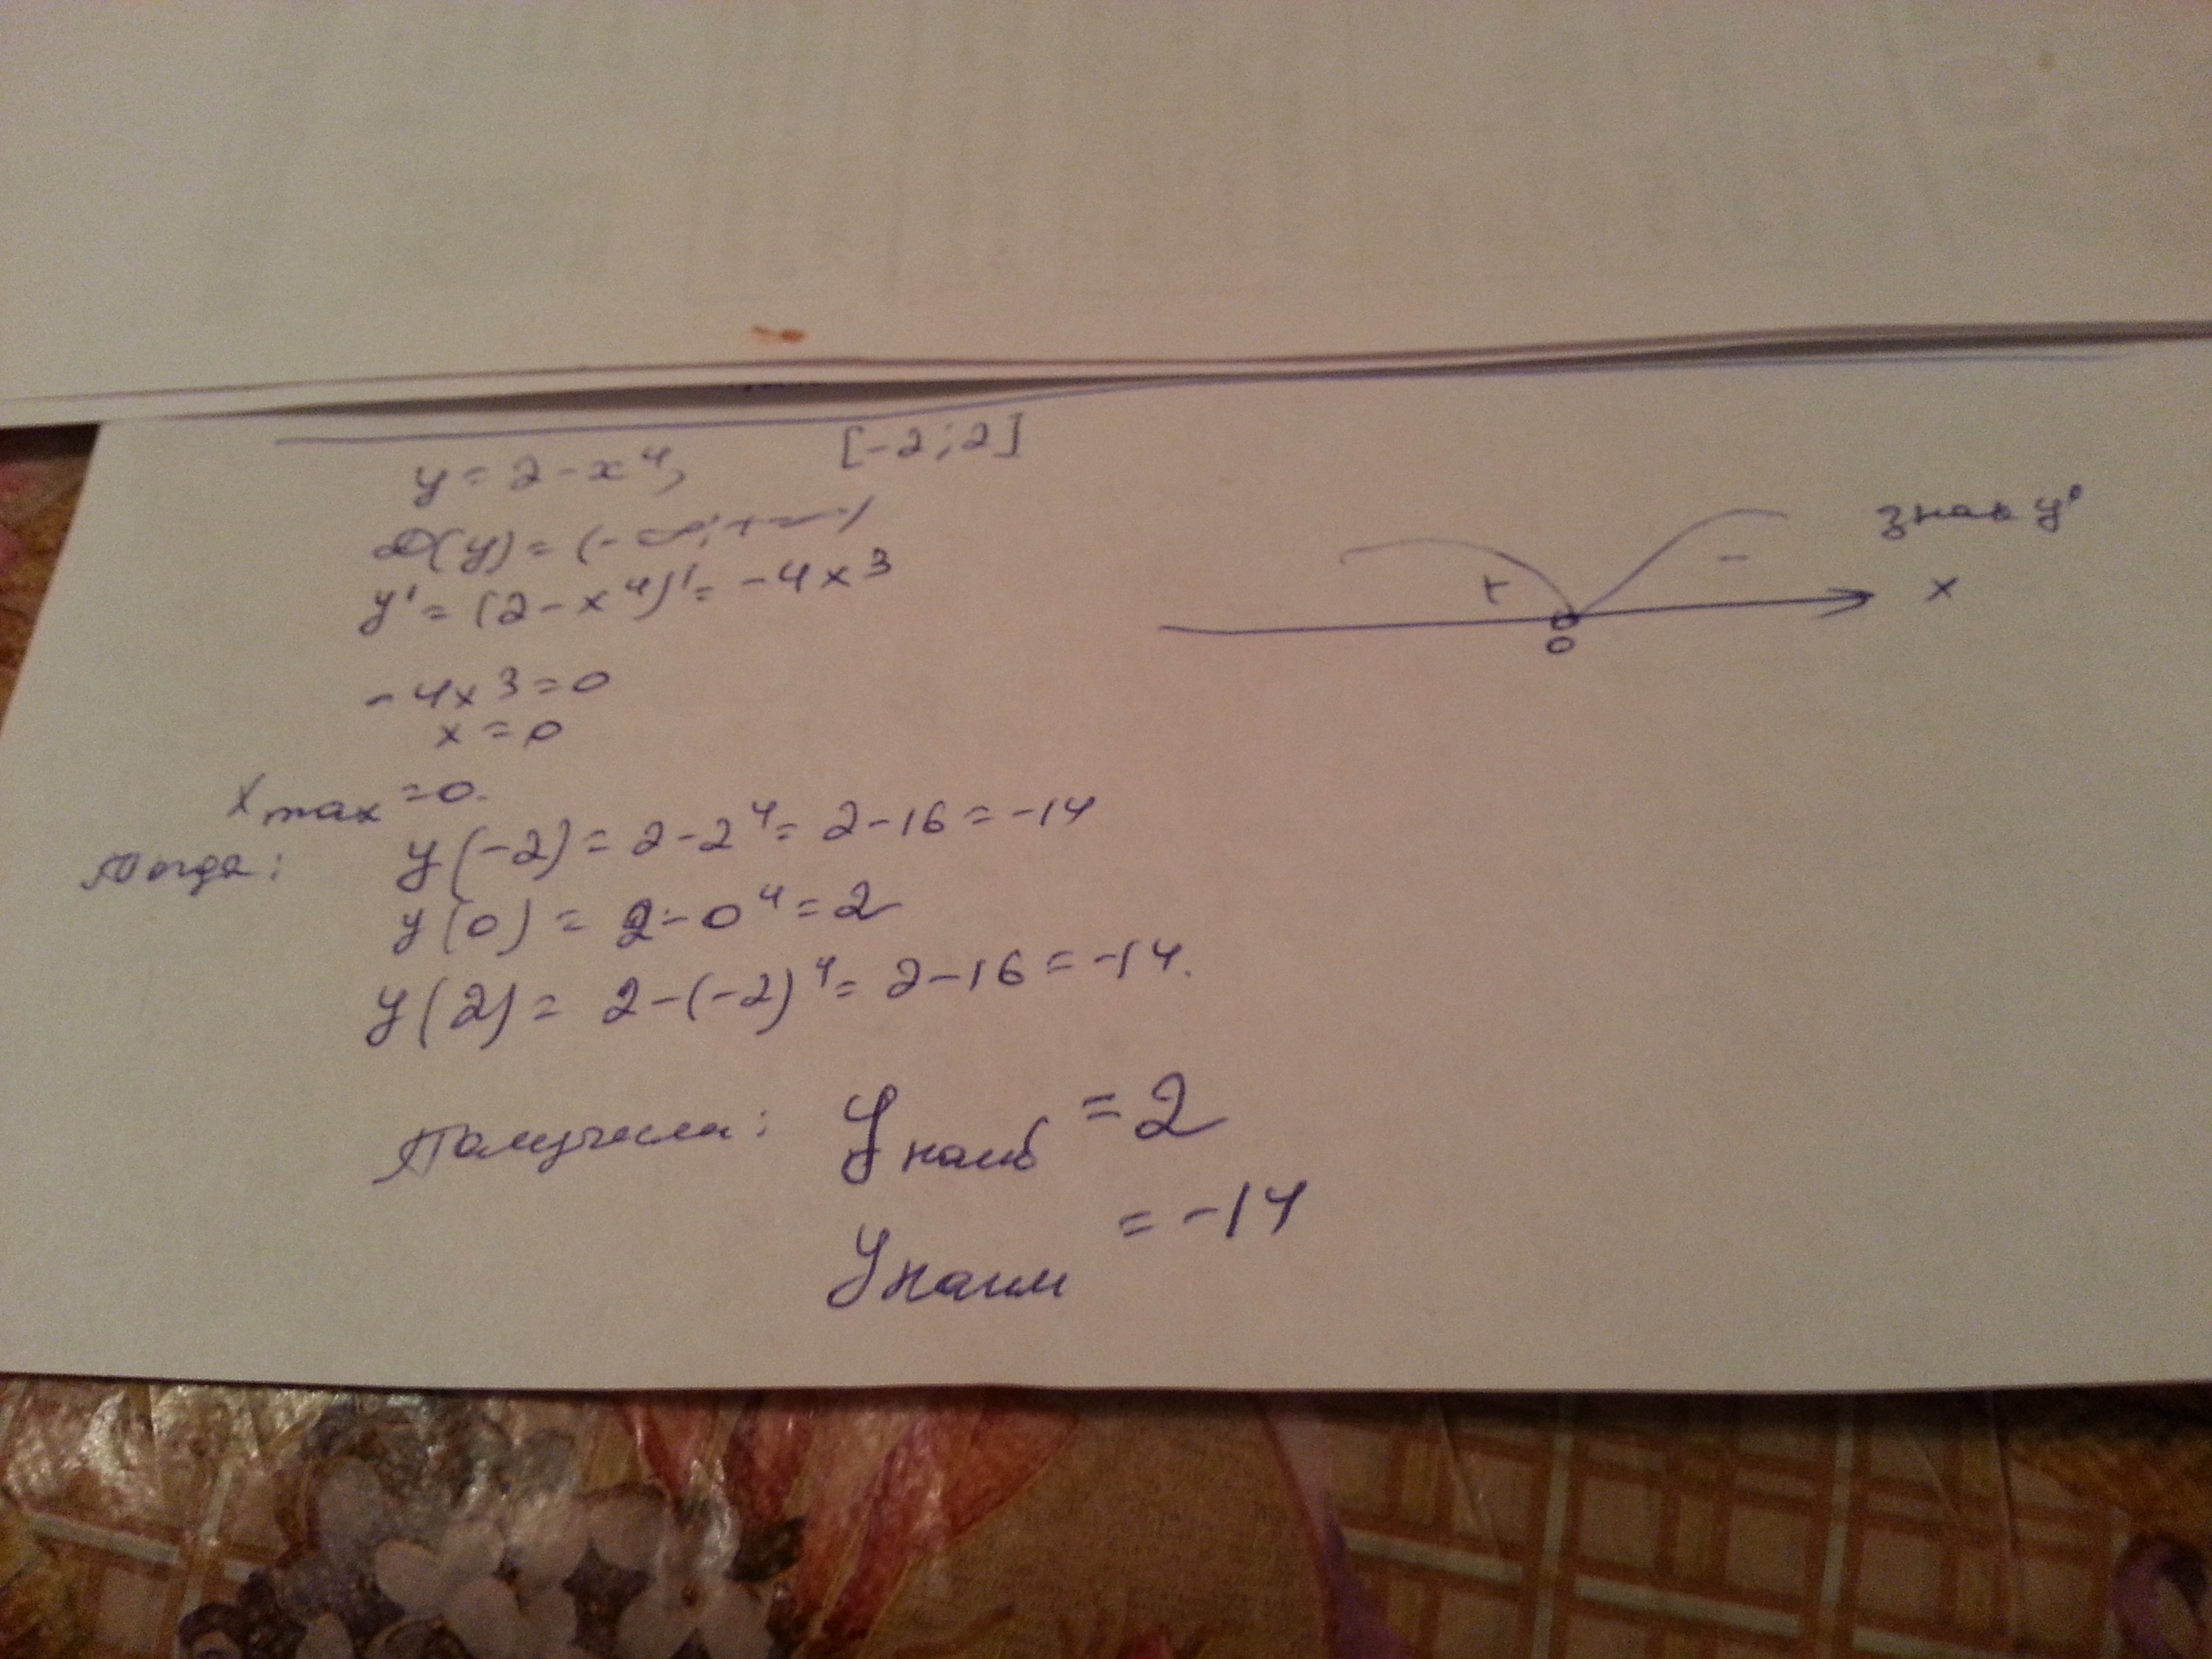 y = 2 - x⁴, [-2; 2]
D(y) = (-∞; +∞)
y' = (2 - x⁴)' = -4x³
знак y'
+ -
x
0
-4x³ = 0
x = 0
x max = 0.
Тогда: y(-2) = 2 - 2⁴ = 2 - 16 = -14
y(0) = 2 - 0⁴ = 2
y(2) = 2 - (-2)⁴ = 2 - 16 = -14.
Получили: y наиб = 2
y наим = -14